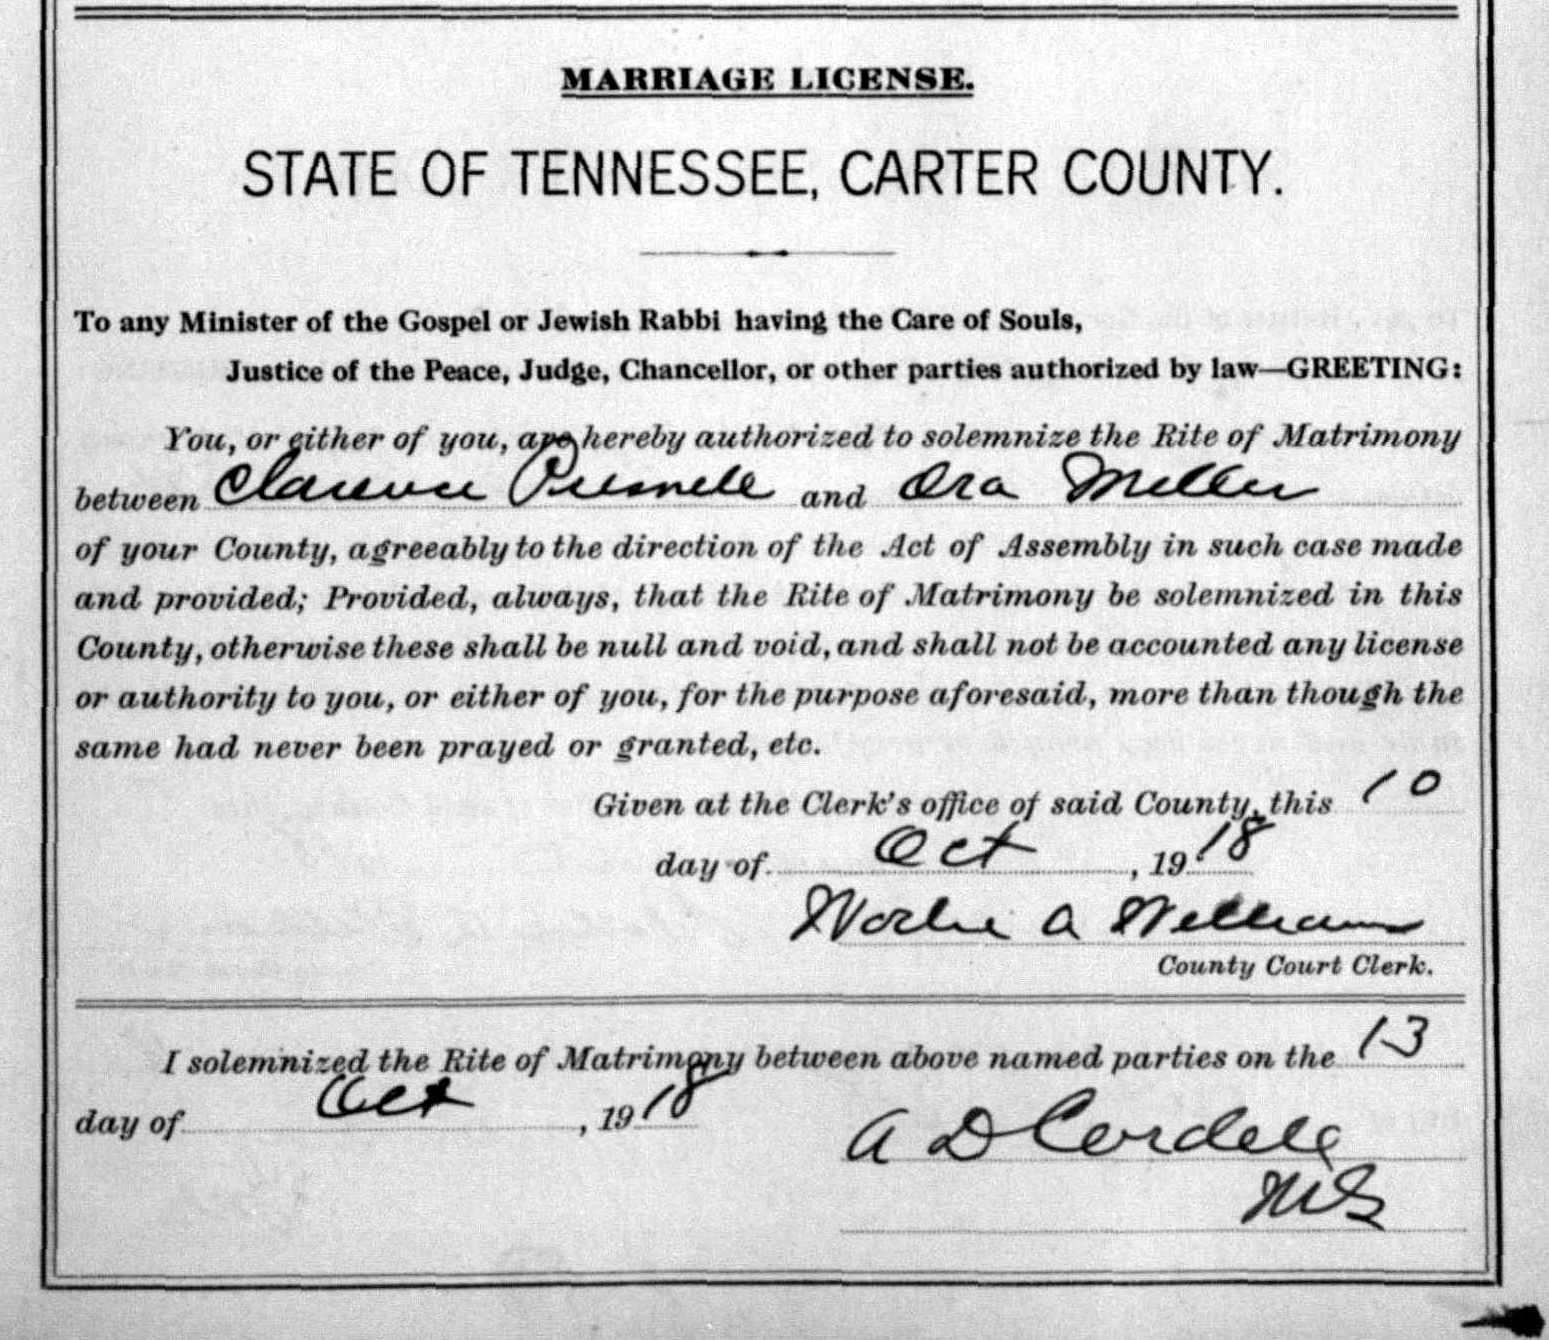 MARRIAGE LICENSE.
STATE OF TENNESSEE, CARTER COUNTY.
To any Minister of the Gospel or Jewish Rabbi having the Care of Souls,
Justice of the Peace, Judge, Chancellor, or other parties authorized by law—GREETING:
You, or either of you, are hereby authorized to solemnize the Rite of Matrimony
between Clarence Presnell and Ora Miller
of your County, agreeably to the direction of the Act of Assembly in such case made
and provided; Provided, always, that the Rite of Matrimony be solemnized in this
County, otherwise these shall be null and void, and shall not be accounted any license
or authority to you, or either of you, for the purpose aforesaid, more than though the
same had never been prayed or granted, etc.
Given at the Clerk's office of said County, this 10
day of Oct, 1918
A Williams
County Court Clerk.
I solemnized the Rite of Matrimony between above named parties on the 13
day of Oct, 1918
A D Cordell
MG